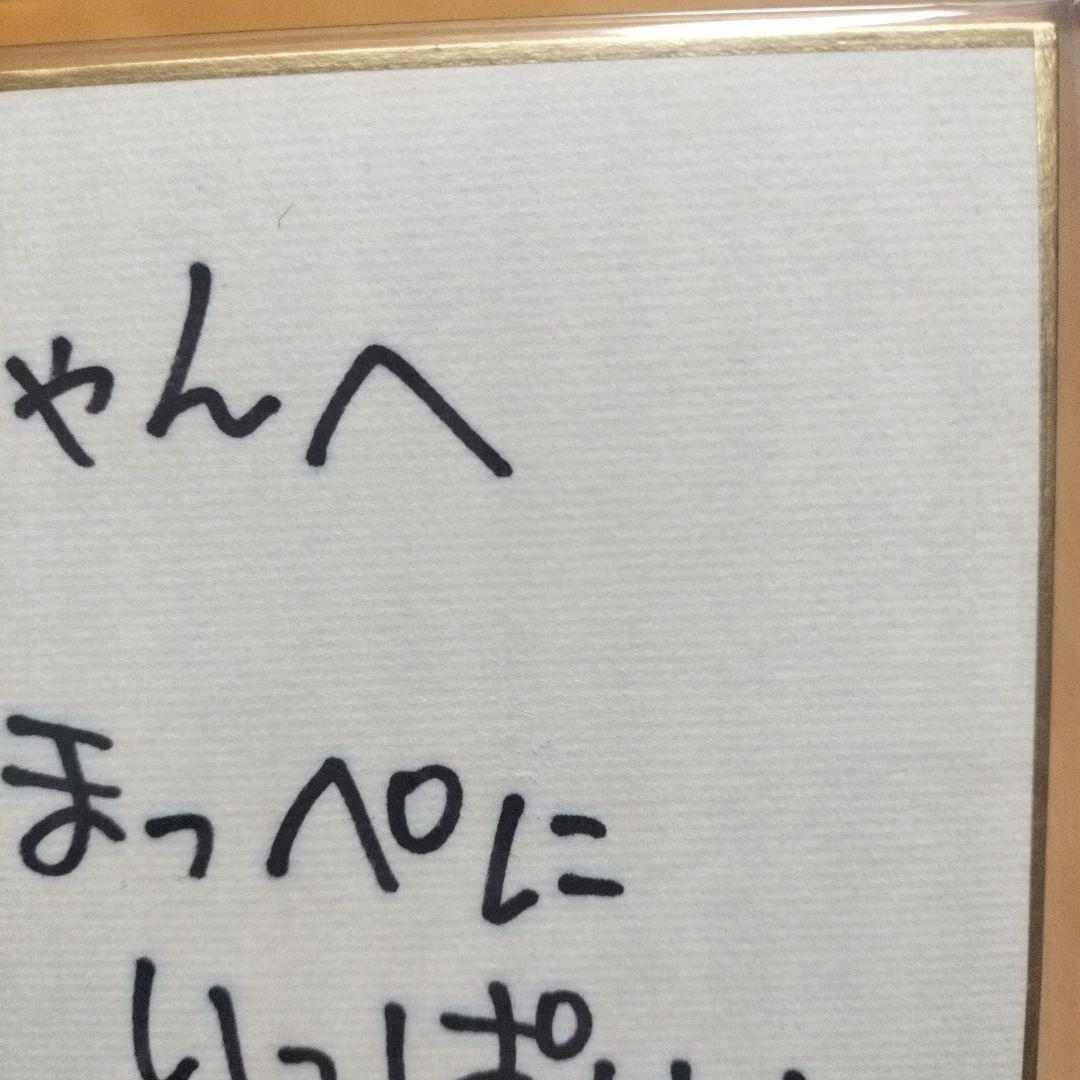 ゃんへ
ほっぺに
いっぱい